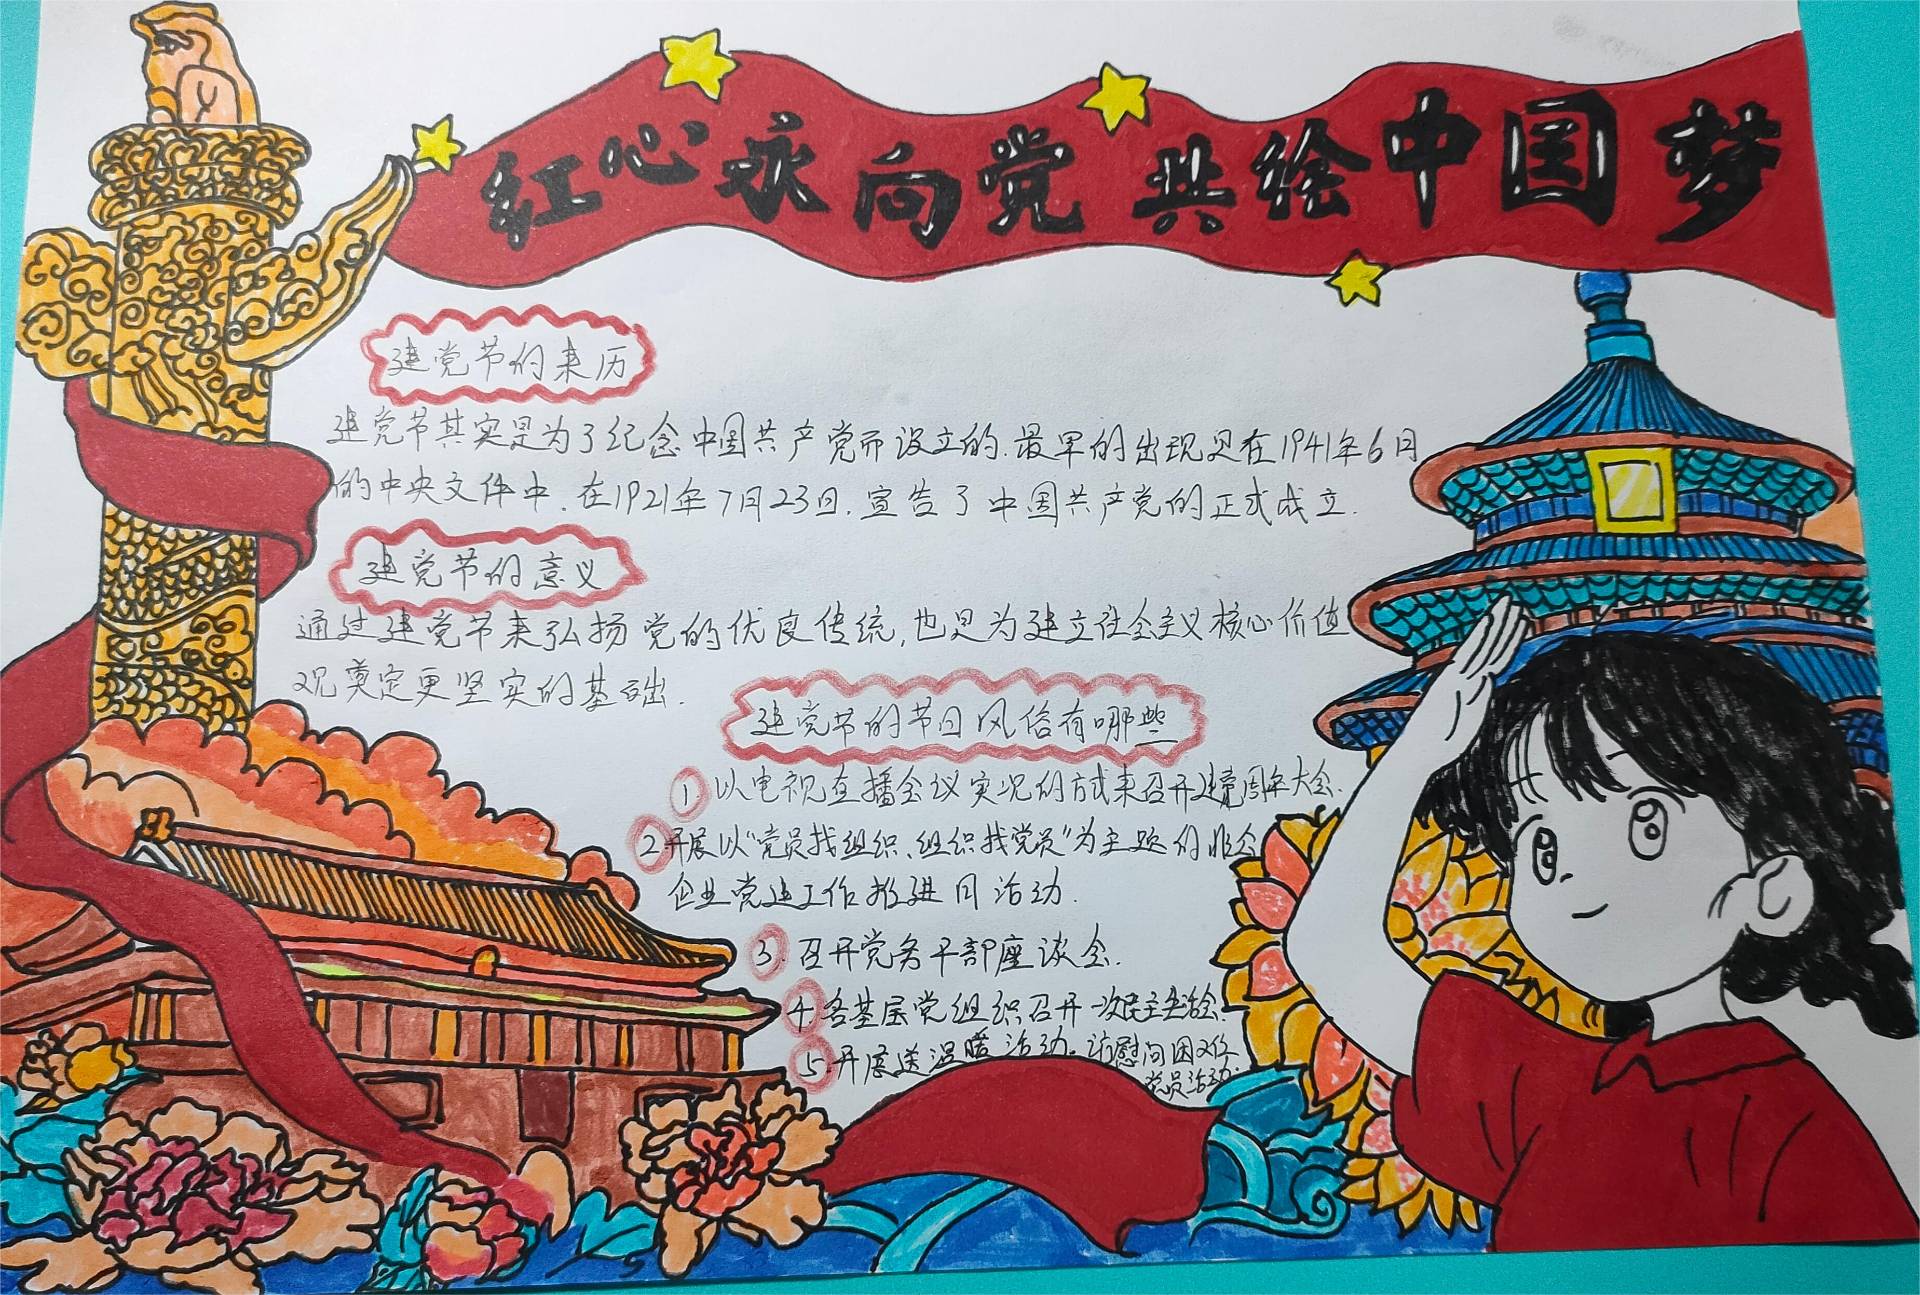 红心永向党 共绘中国梦
建党节的来历
建党节其实是为了纪念中国共产党而设立的.最早的出现是在1941年6月
的中央文件中.在1921年7月23日.宣告了中国共产党的正式成立.
建党节的意义
通过建党节来弘扬党的优良传统,也是为建立社会主义核心价值
观奠定更坚实的基础.
建党节的节日风俗有哪些
1.以电视直播会议实况的方式来召开建党周年大会.
2.开展以“党员找组织、组织找党员”为主题的非公
企业党建工作推进月活动.
3.召开党务干部座谈会.
4.各基层党组织召开一次民主生活会.
5.开展送温暖活动。访慰问困难
党员活动.